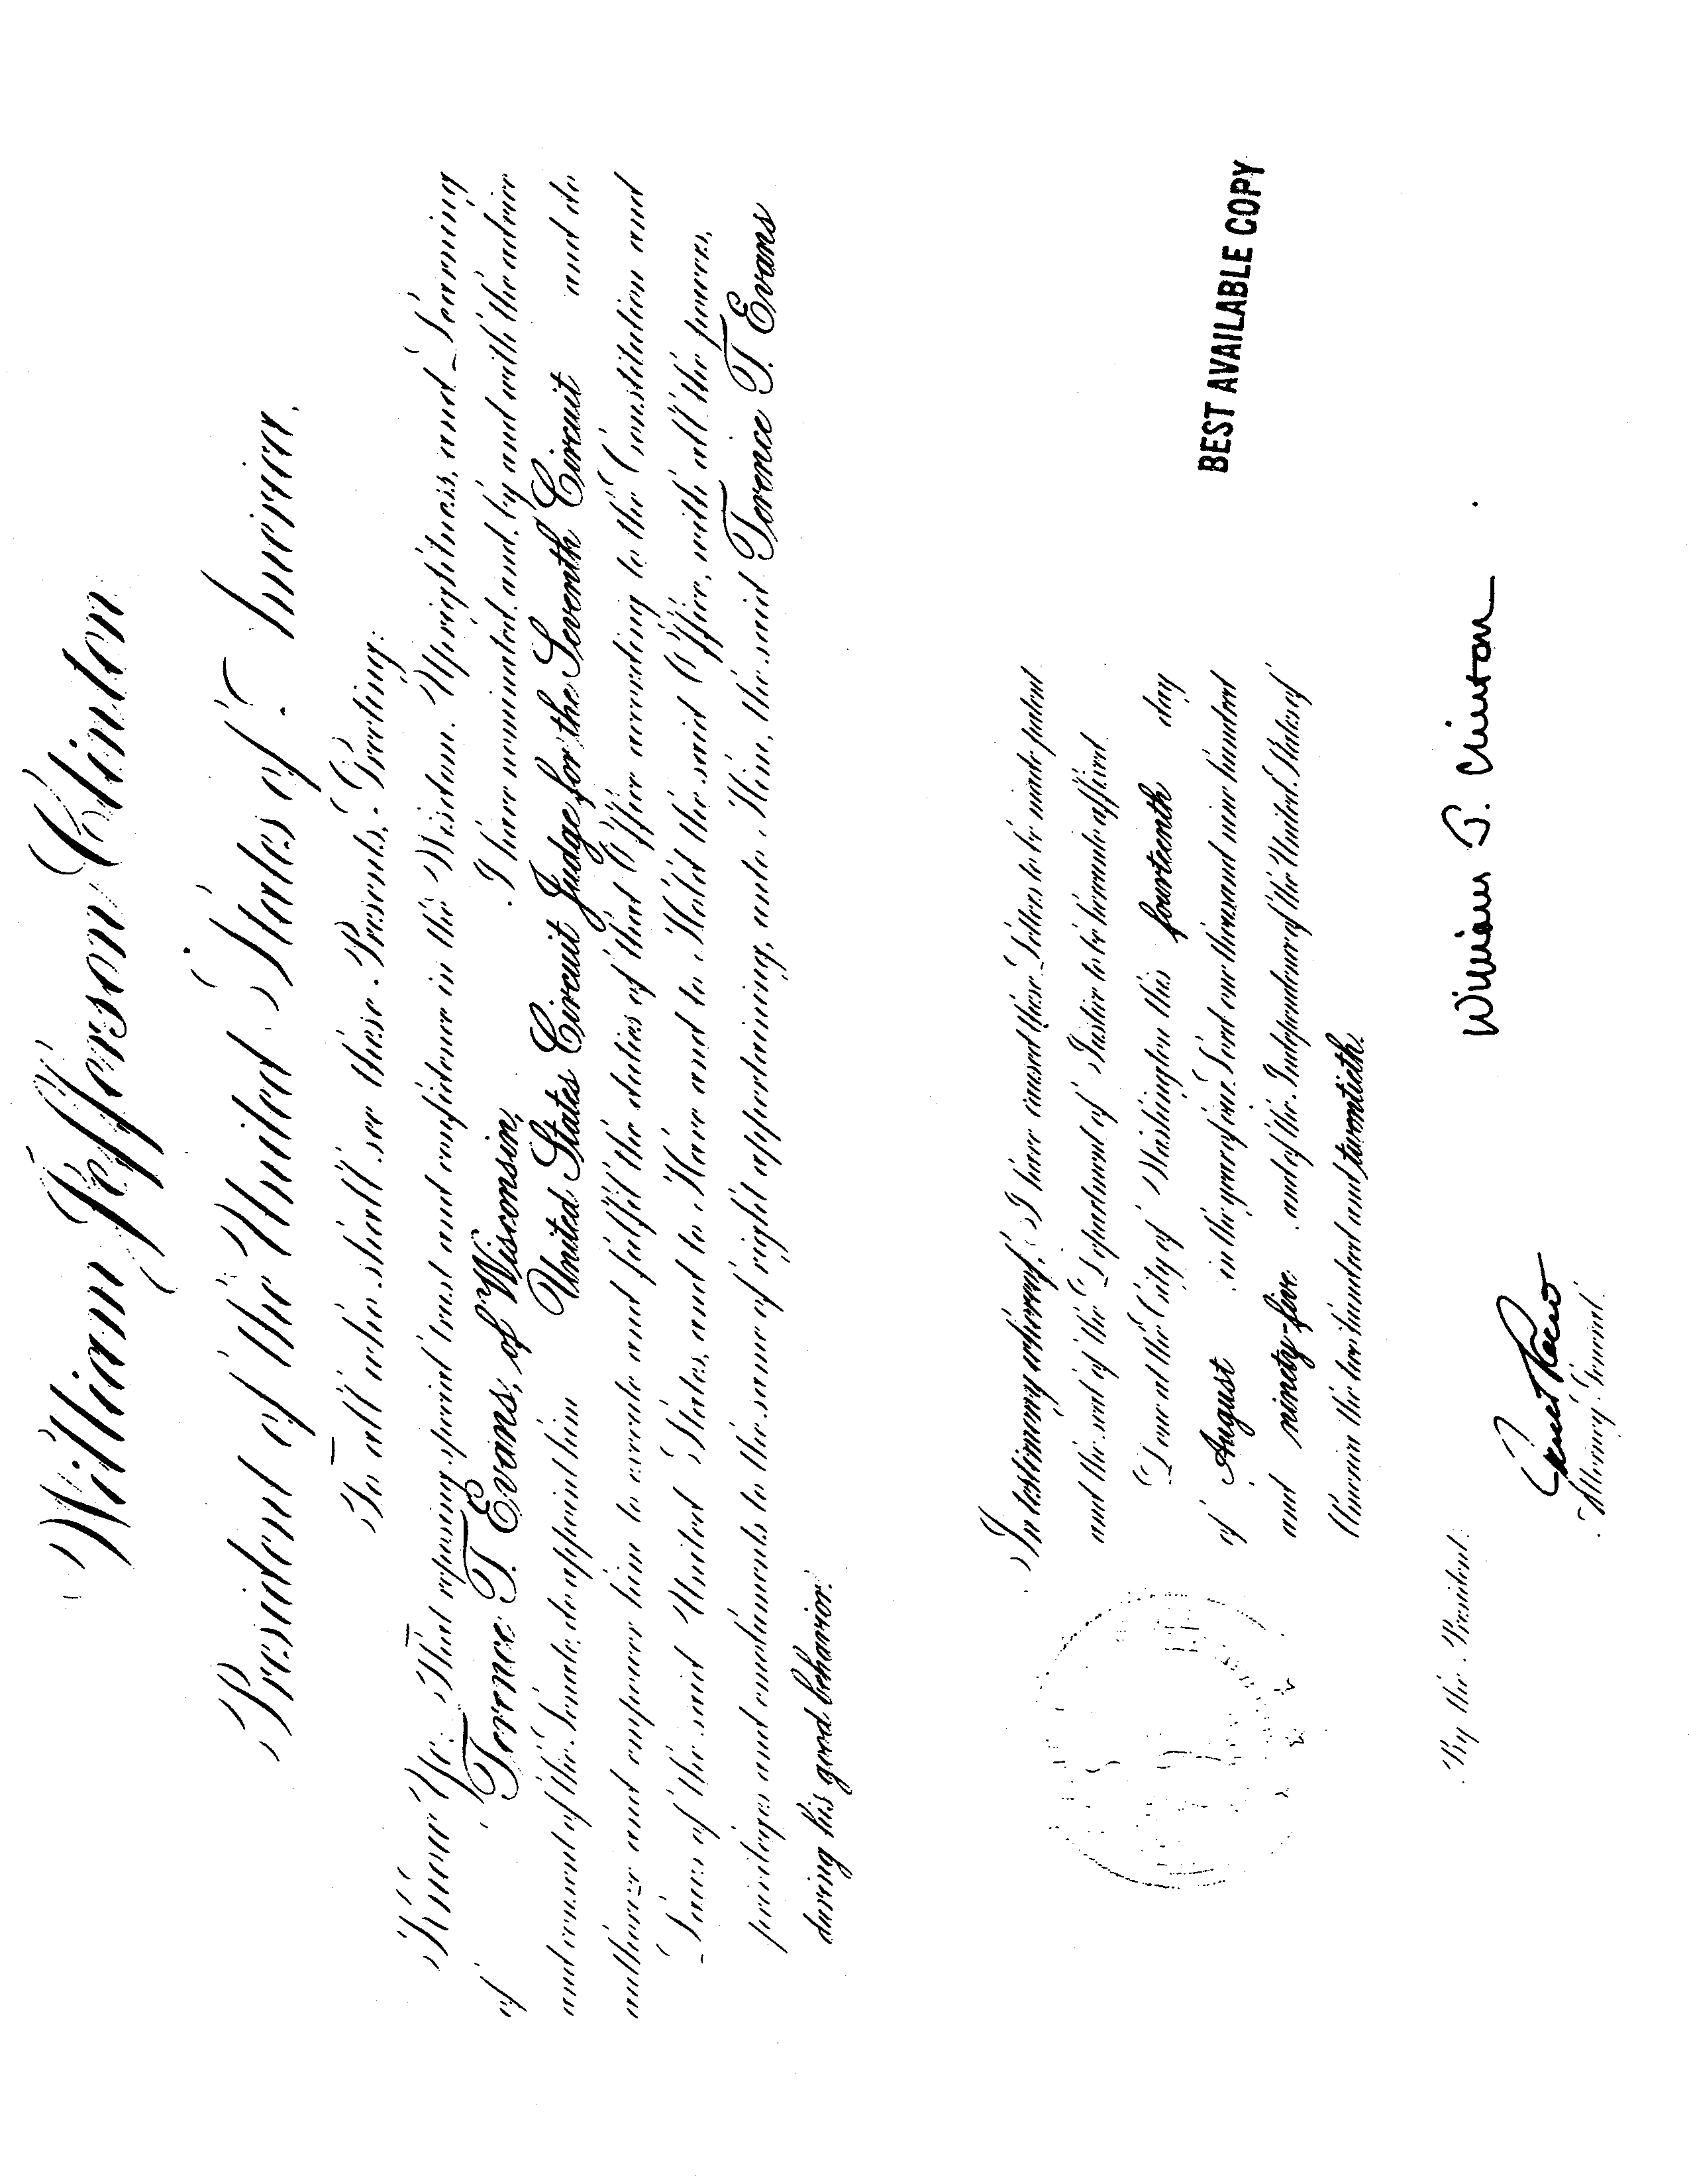 William Jefferson Clinton
President of the United States of America.
To all who shall see these Presents, Greeting:
Know Ye: That reposing special trust and confidence in the Wisdom, Uprightness, and Learning
of Terence T. Evans, of Wisconsin, I have nominated, and, by and with the advice
and consent of the Senate, do appoint him United States Circuit Judge for the Seventh Circuit and do
authorize and empower him to execute and fulfil the duties of that Office according to the Constitution and
Laws of the said United States, and to Have and to Hold the said Office, with all the powers,
privileges and emoluments to the same of right appertaining, unto Him, the said Terence T. Evans
during his good behavior.
In testimony whereof, I have caused these Letters to be made patent
and the seal of the Department of Justice to be hereunto affixed.
Done at the City of Washington this fourteenth day
of August in the year of our Lord one thousand nine hundred
and ninety-five and of the Independence of the United States of
America the two hundred and twentieth.
BEST AVAILABLE COPY
William J. Clinton
By the President:
Janet Reno
Attorney General.